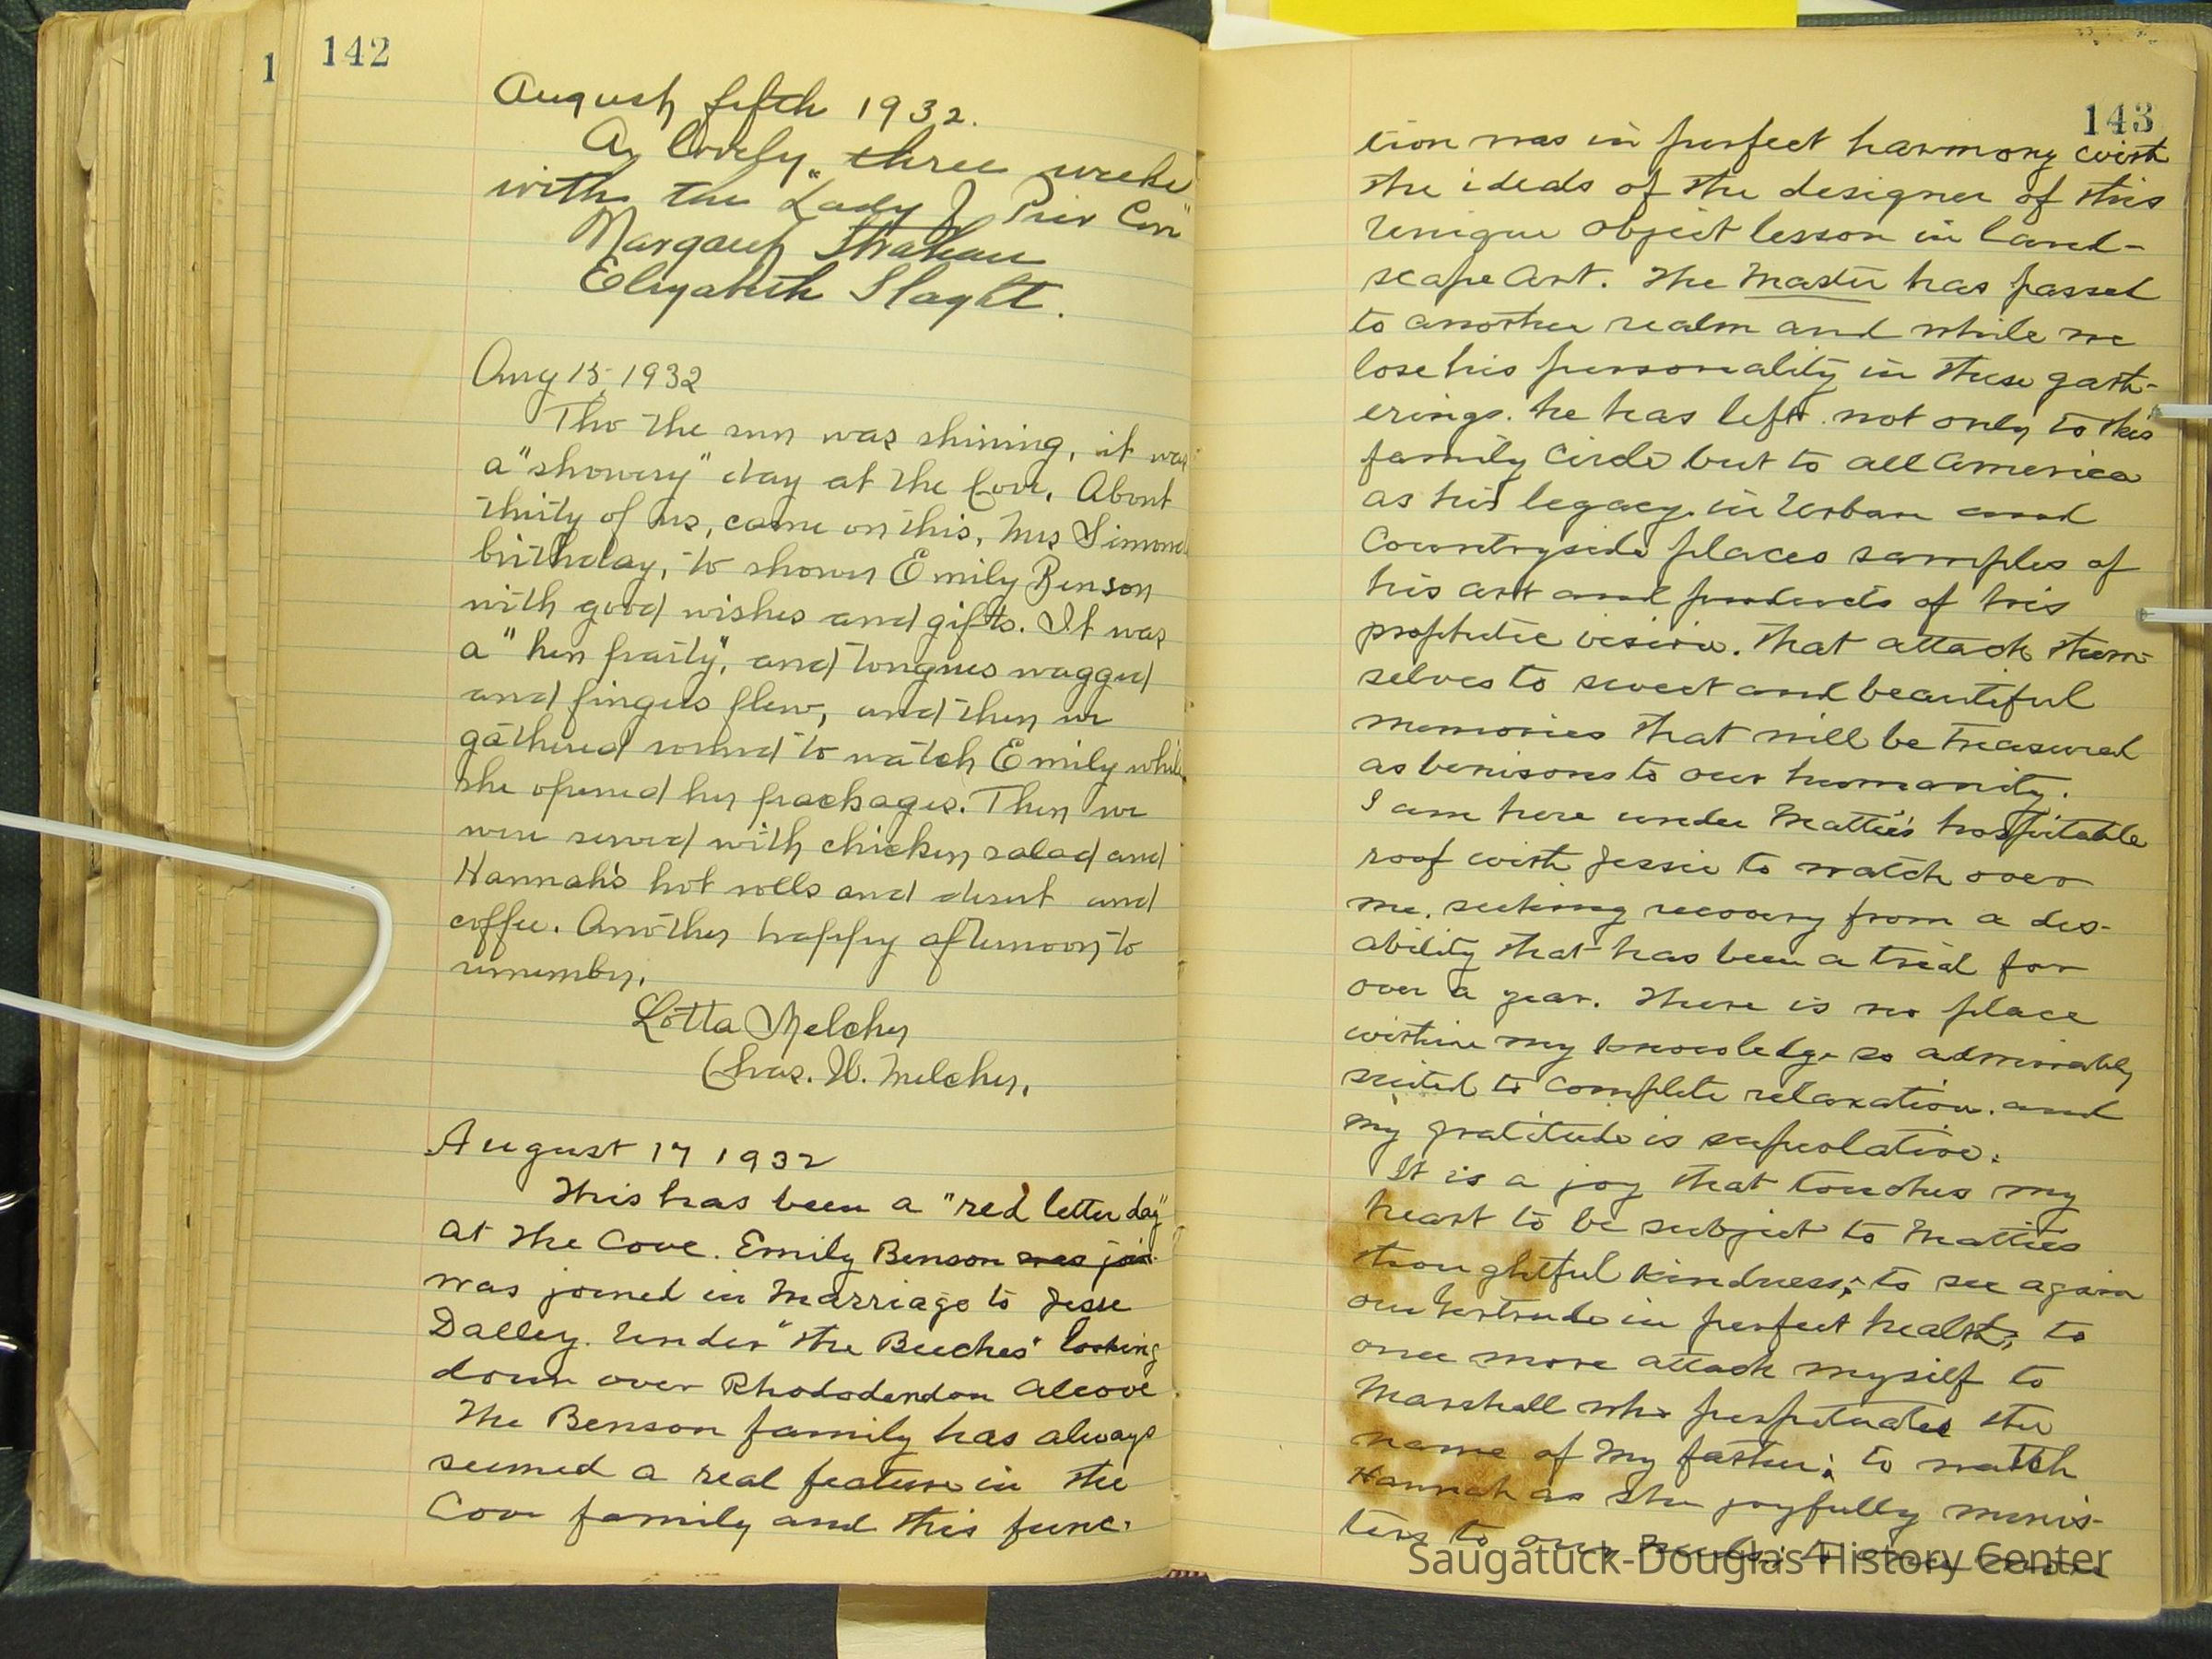 1
142
August fifth 1932.
A lovely three weeks
with the "Lady of Pier Cove"
Margaret Strahan
Elizabeth Slaght.
Aug 15, 1932
Tho the sun was shining, it was
a "showery" day at the Cove. About
thirty of us, came on this, Mrs Simonds
birthday, to shower Emily Benson
with good wishes and gifts. It was
a "hen party", and tongues wagged
and fingers flew, and then we
gathered round to watch Emily while
she opened her packages. Then we
were served with chicken salad and
Hannah's hot rolls and desert and
coffee. Another happy afternoon to
remember.
Lotta Melcher
Chas. W. Melcher.
August 17 1932
This has been a "red letter day"
at the Cove. Emily Benson was join
was joined in marriage to Jesse
Dalley. Under "the Beeches" looking
down over Rhododendon Alcove.
The Benson family has always
seemed a real feature in the
Cove family and this func-
143
tion was in perfect harmony with
the ideals of the designer of this
unique object lesson in land-
scape art. The Master has passed
to another realm and while we
lose his personality in these gath-
erings. he has left not only to this
family circle but to all America
as his legacy in urban and
Countryside places samples of
his art and products of his
prophetic vision. That attach them-
selves to sweet and beautiful
memories that will be treasured
as benisons to our humanity.
I am here under Mattie's hospitable
roof with Jessie to watch over
me. seeking recovery from a dis-
ability that has been a trial for
over a year. There is no place
within my knowledge so admirably
suited to complete relaxation. and
my gratitude is superlative.
It is a joy that touches my
heart to be subject to Matties
thoughtful kindness; to see again
our Gertrude in perfect health; to
once more attach myself to
Marshall who perpetuates the
name of my father; to watch
Hannah as she joyfully minis-
ters to our needs; to
Saugatuck-Douglas History Center